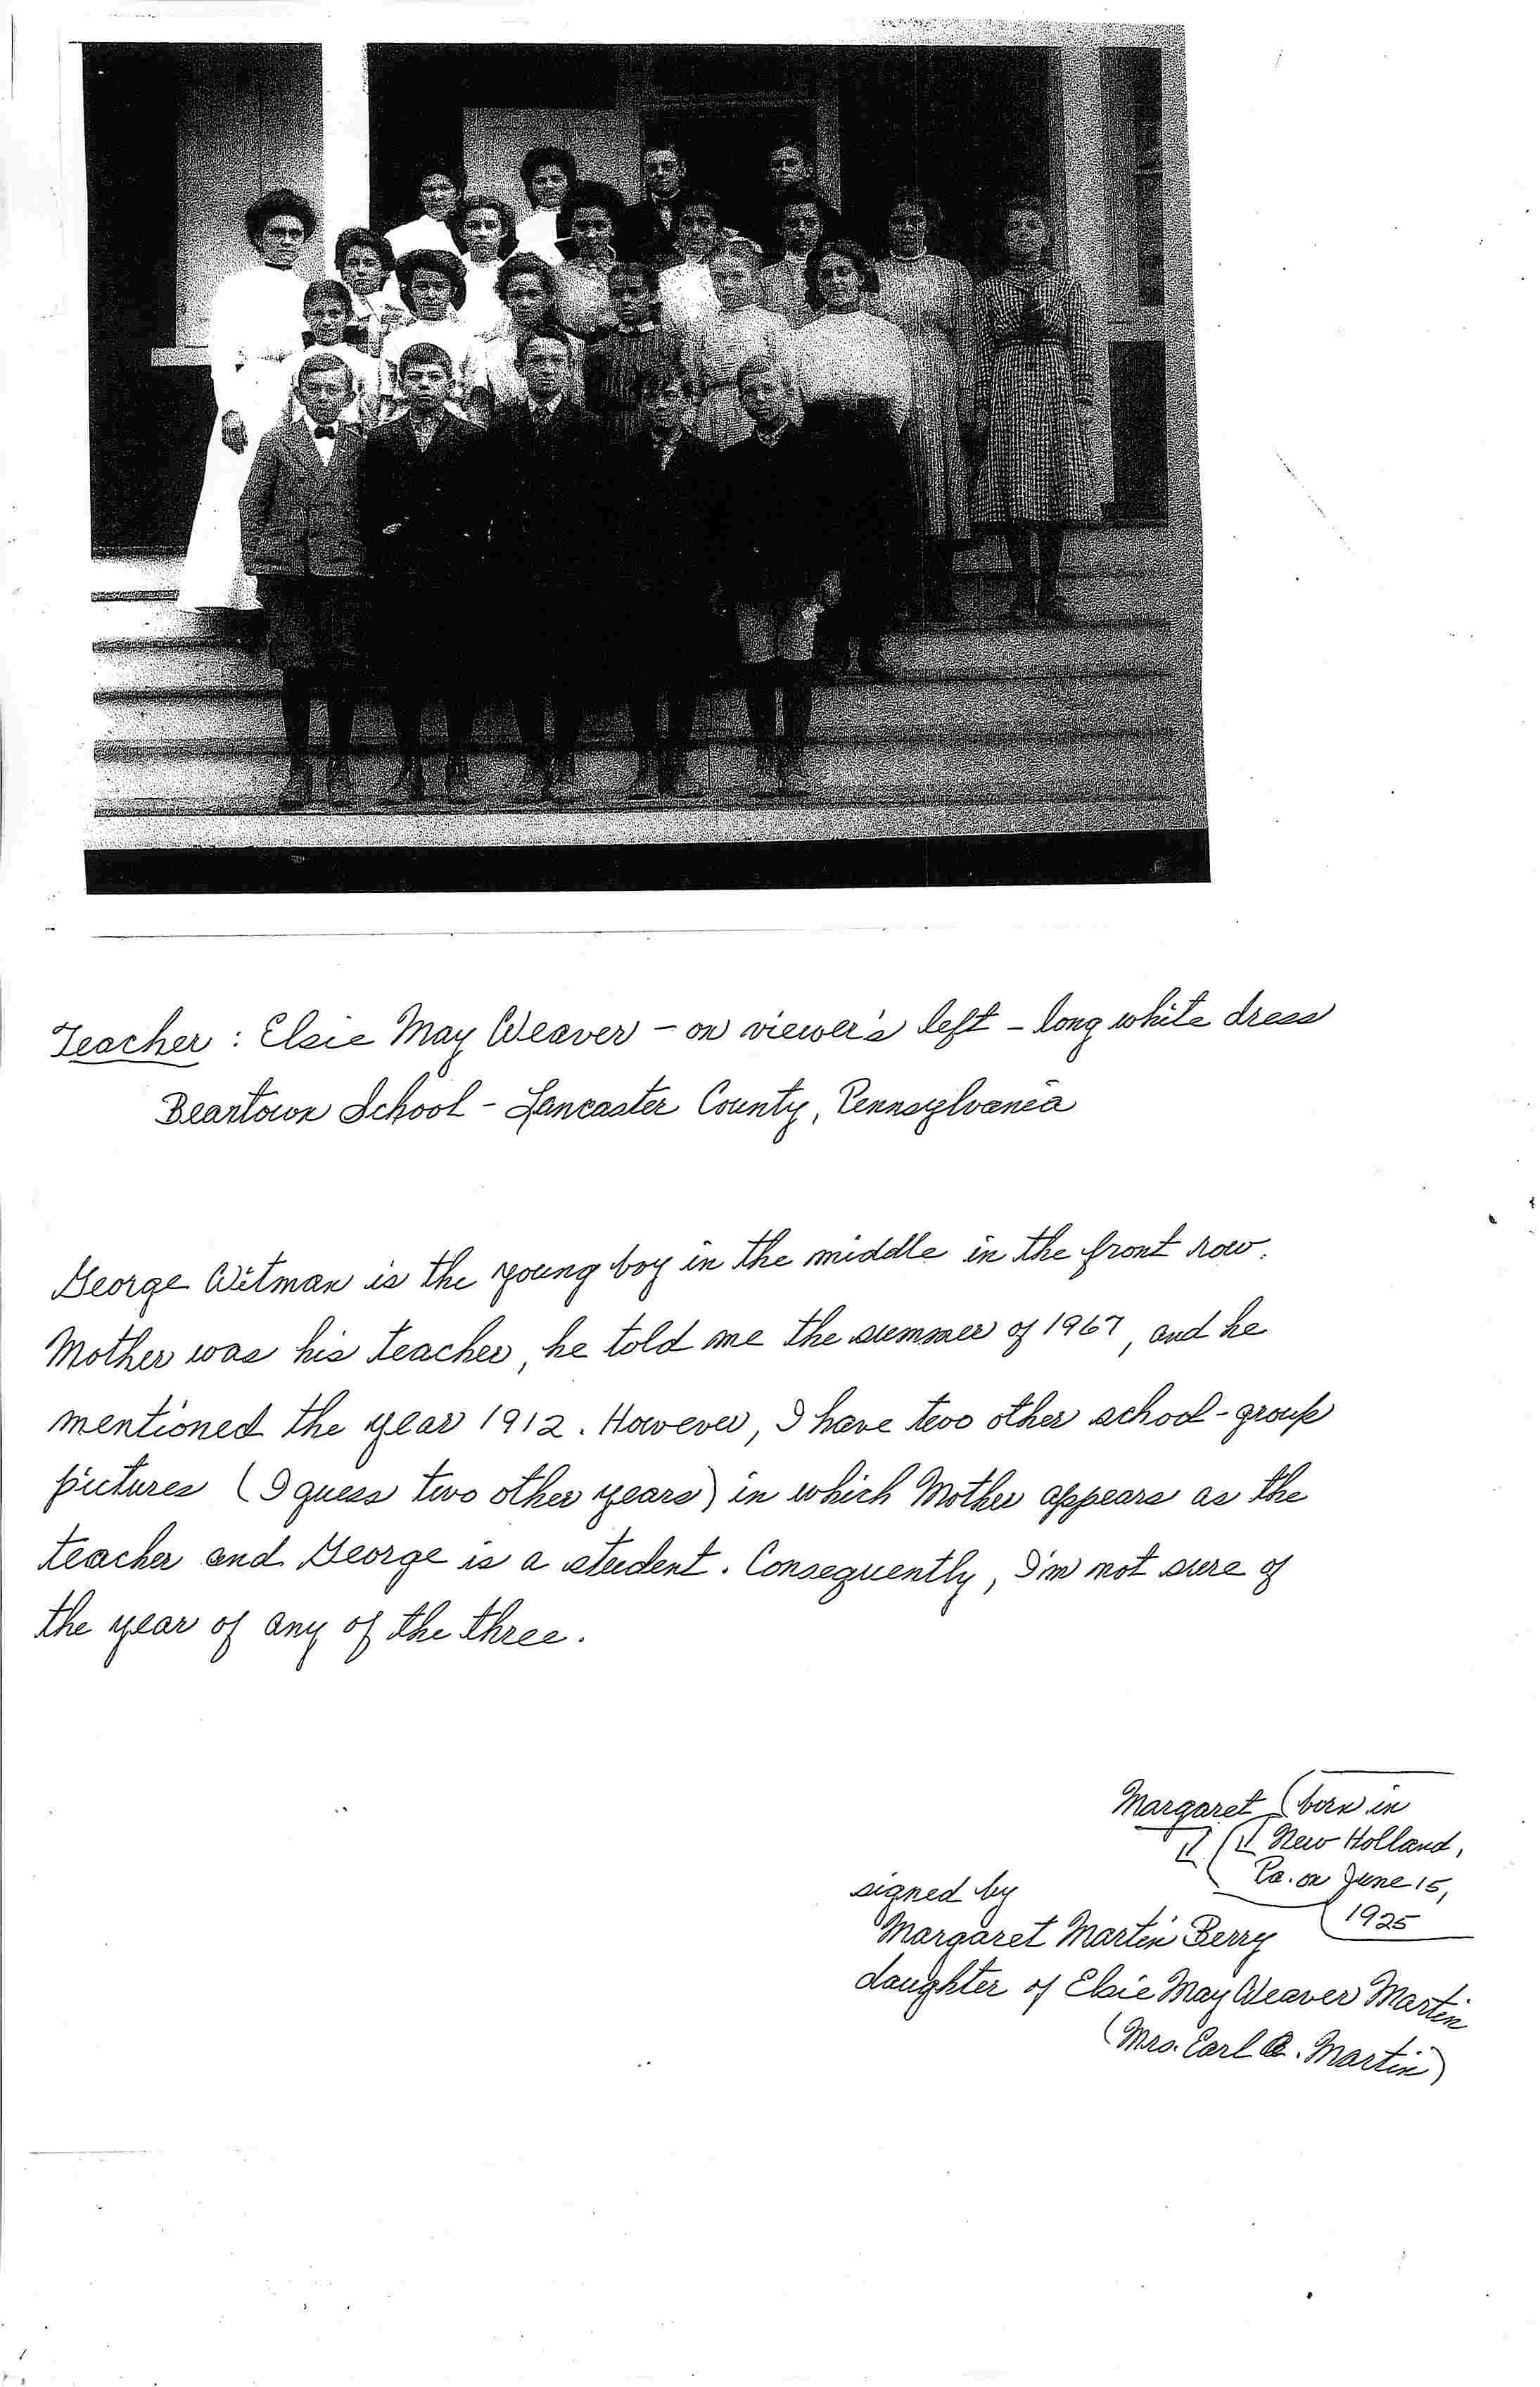 Teacher : Elsie May Weaver – on viewer's left – long white dress
Beartown School – Lancaster County, Pennsylvania
George Witman is the young boy in the middle in the front row.
Mother was his teacher, he told me the summer of 1967, and he
mentioned the year 1912. However, I have two other school-group
pictures (I guess two other years) in which Mother appears as the
teacher and George is a student. Consequently, I'm not sure of
the year of any of the three.
Margaret (born in
New Holland,
Pa. on June 15,
1925
signed by
Margaret Martin Berry
daughter of Elsie May Weaver Martin
(Mrs. Earl . Martin)